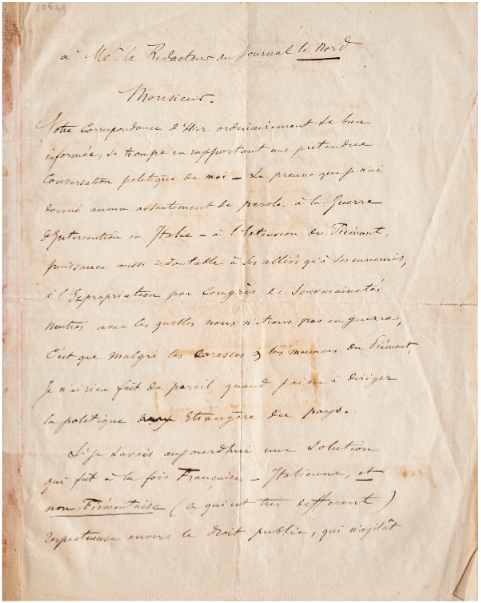 à Mr. le Rédacteur du Journal le Nord
Monsieur.
Votre Correspondance d'Hier ordinairement si bien
informée, se trompe en rapportant une pretendue
Conversation politique de moi – La preuve que je n'ai
donné aucun assentiment de parole à la Guerre
d'Intervention en Italie – à l'Extension du Piémont,
puissance aussi redoutable à ses alliés qu'à ses ennemis,
à l'Expropriation par Congrès de Souverainetés
neutres avec les quelles nous n'étions pas en guerre,
C'est que malgré les Caresses & les menaces du Piémont,
Je n'ai rien fait de pareil quand j'ai eu à diriger
la politique Etrangère du pays.
Si je savais aujourdhui une Solution
qui fut à la fois Française – Italienne, et
non-Piémontaise (ce qui est très different)
respectueuse envers le droit public, qui n'agitât